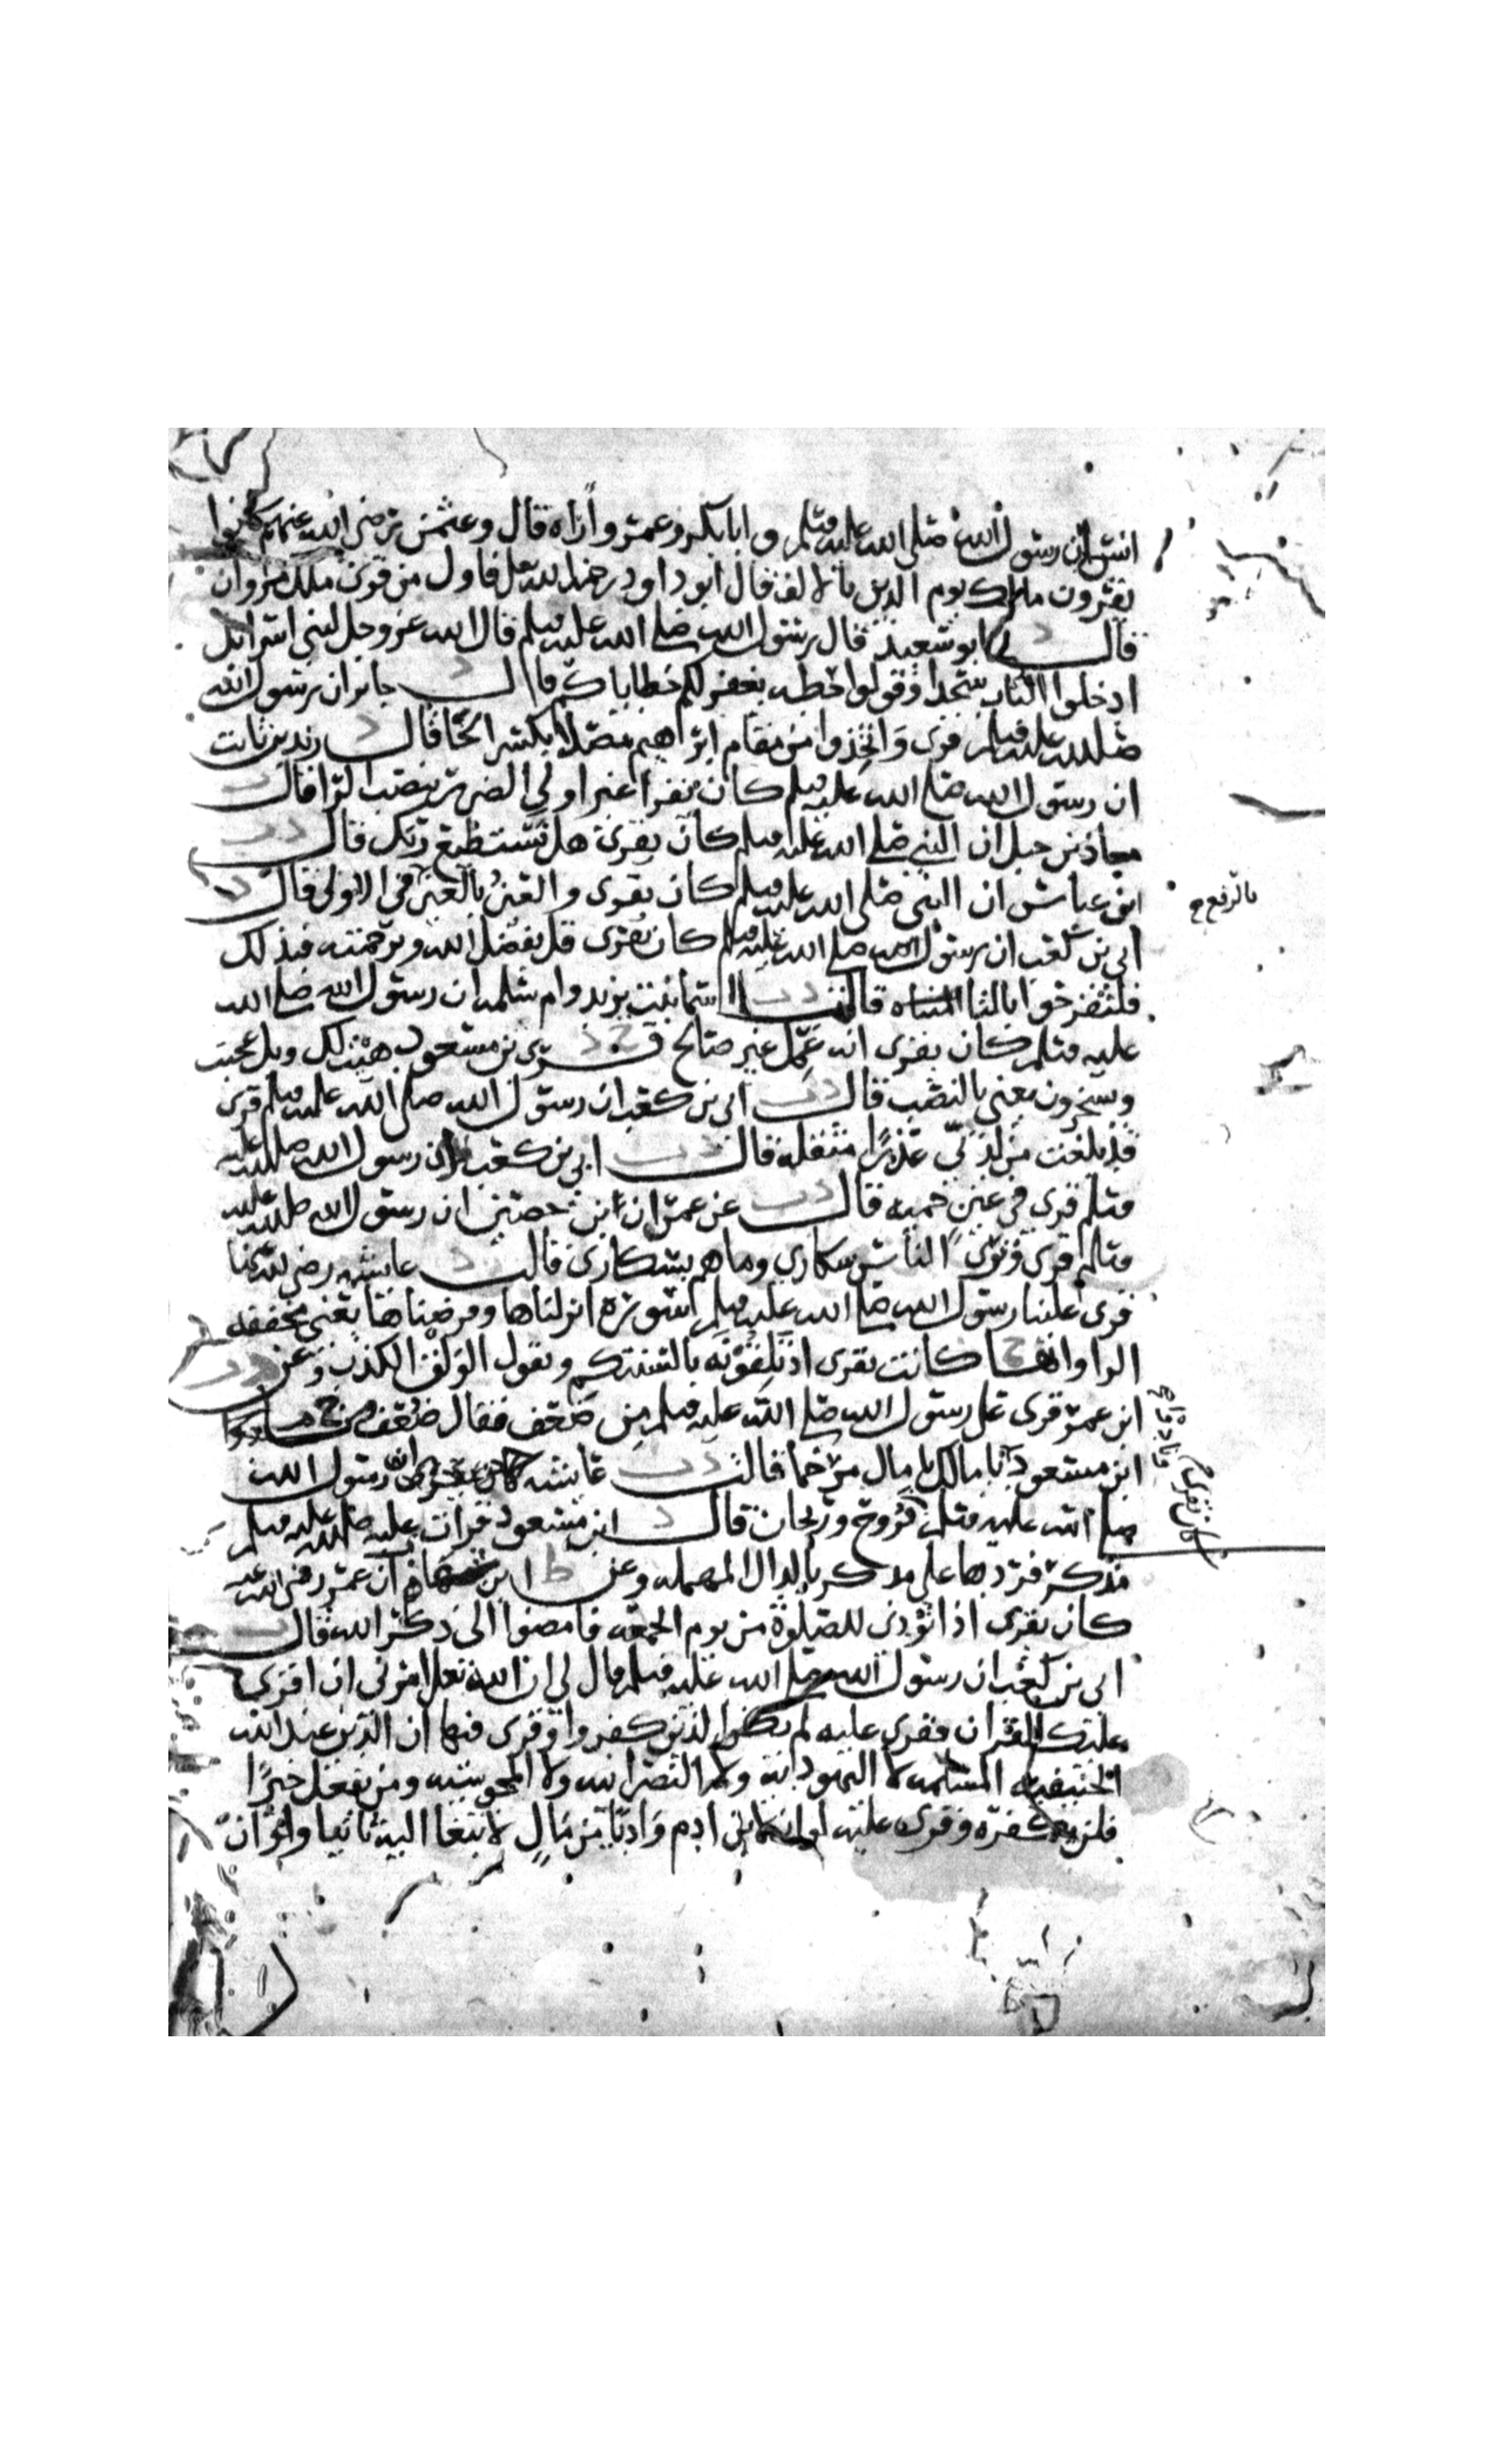 انس ان رسول الله صلى الله عليه وسلم وابا بكر وعمر واراه قال وعثمن رضي الله عنهم كانوا
يقرون مالك يوم الدين بالالف قال ابو داود رحمه الله تعالى فاول من قرى ملك مروان
قال د ابو سعيد قال رسول الله صلى الله عليه وسلم قال الله عز وجل لبني اسرايل
ادخلوا الباب سجدا وقولوا حطه يغفر لكم خطاياكم قال د جابر ان رسول الله
صلى الله عليه وسلم قرى واتخذوا من مقام ابراهيم مصلا بكسر الخا قال د زيد بن ثابت
ان رسول الله صلى الله عليه وسلم كان يقرا غير اولي الضرر بنصب الرا قال
معاذ بن جبل ان النبي صلى الله عليه وسلم كان يقرى هل تستطيع ربك قال
ابن عباس ان النبي صلى الله عليه وسلم كان يقرى والعين بالعين في الاولى قال
بالرفع
ابي بن كعب ان رسول الله صلى الله عليه وسلم كان يقرى قل بفضل الله وبرحمته فبذلك
فلتفرحوا بالتا المثناه قالت اسما بنت يزيد وام سلمه ان رسول الله صلى الله
عليه وسلم كان يقرى انه عمل غير صالح قرى بن مسعود هيت لك وبل عجبت
ويسخرون يعني بالنصب قال ابي بن كعب ان رسول الله صلى الله عليه وسلم قرى
قد بلغت من لدني عذرا مثقله قال ابي بن كعب ان رسول الله صلى الله عليه
وسلم قرى في عين حميه قال عن عمران ابن حصين ان رسول الله صلى الله عليه
وسلم قرى وترى الناس سكارى وما هم بسكارى قالت د عايشه رضي الله عنها
قرى علينا رسول الله صلى الله عليه وسلم سوره انزلناها وفرضناها يعني مخففه
الرا وانها كانت تقرى اذ تلقونه بالسنتكم وتقول الولق الكذب وعن
ابن عمر قرى على رسول الله صلى الله عليه وسلم من ضعف فقال ضعف
ابن مسعود يا مالك يا مال مرخما قالت عايشه رسول الله
كان يقرى
صلى الله عليه وسلم فروح وريحان قال د ابن مسعود قرات عليه صلى الله عليه وسلم
مذكر فردها علي مدكر بالدال المهمله وعن ط ابن شهاب ان عمر رضي الله عنه
كان يقرى اذا نودي للصلوة من يوم الجمعه فامضوا الى ذكر الله قال
ابي بن كعب ان رسول الله صلى الله عليه وسلم قال لي ان الله تعالى امرني ان اقرى
عليك القران فقرى عليه لم يكن الذين كفروا وقرى فيها ان الدين عند الله
الحنيفيه المسلمه لا اليهودانية ولا النصرانيه ولا المجوسيه ومن يفعل خيرا
فلن يكفره وقرى عليه لو ان لابن ادم واديا من مال لابتغا اليه ثانيا ولو ان